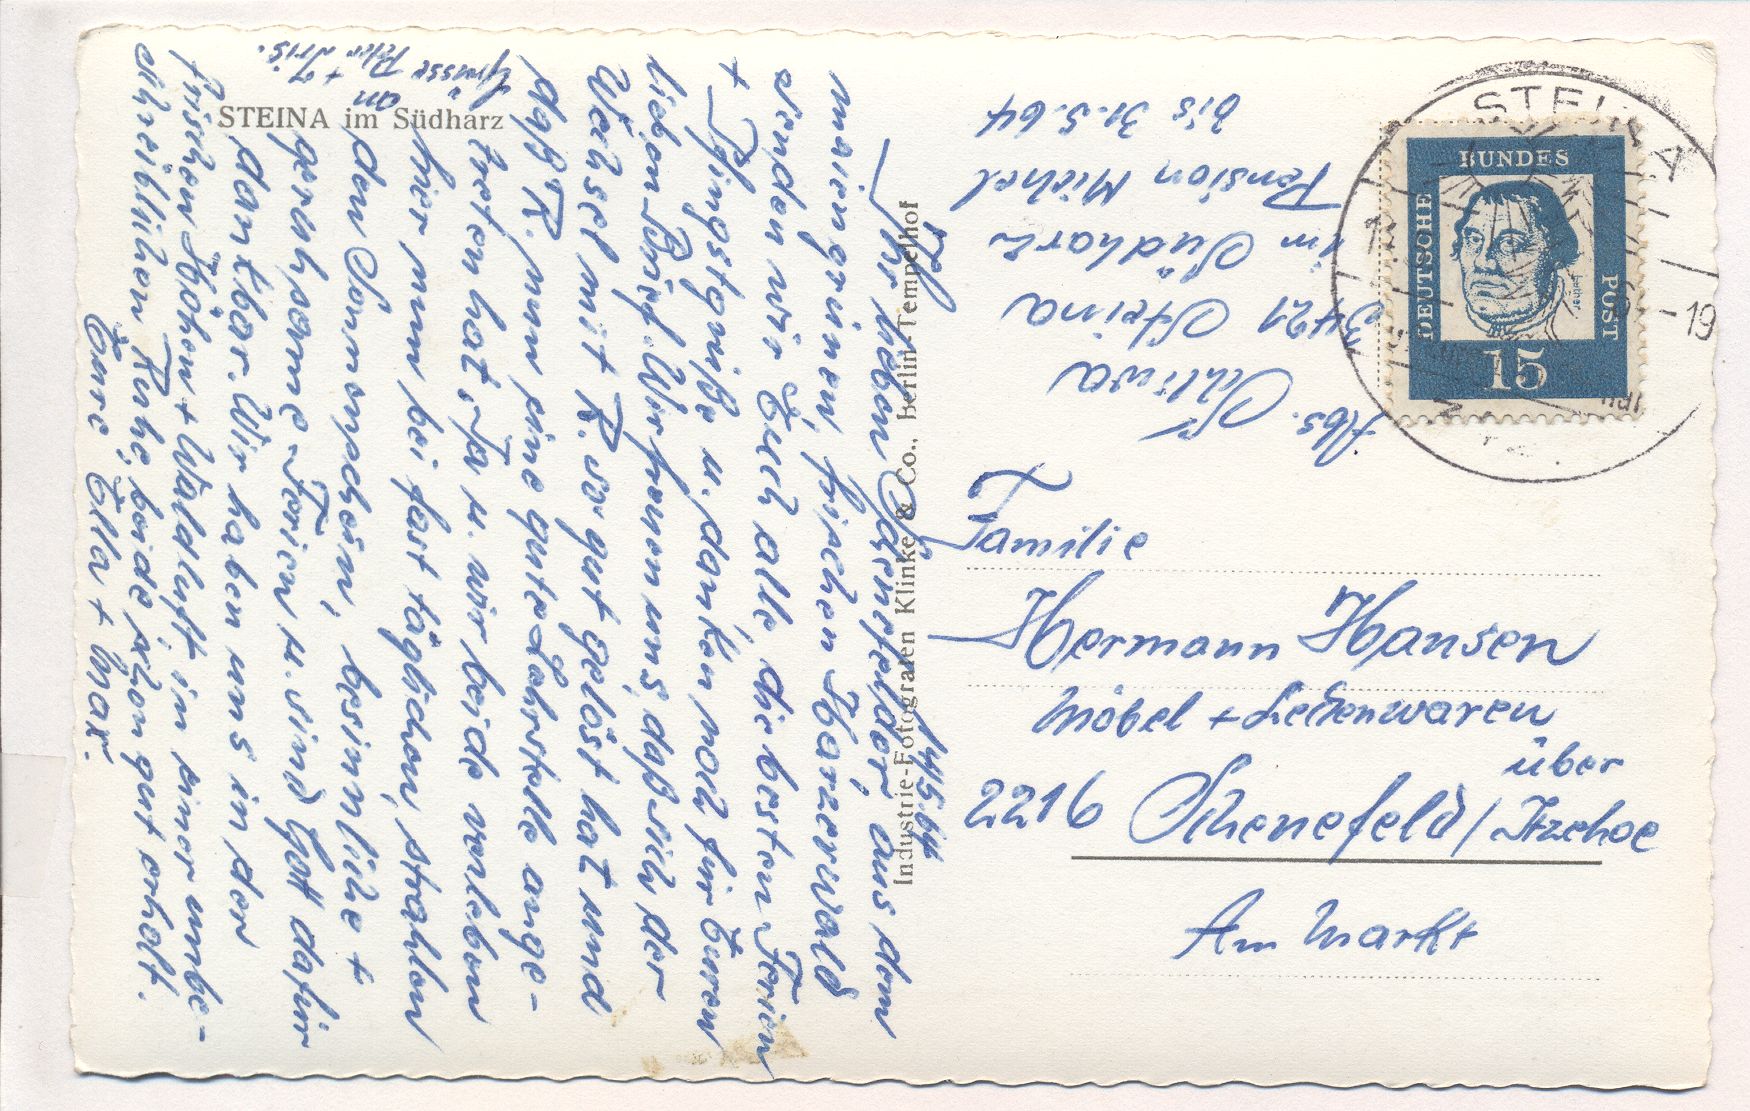 STEINA im Südharz
14/5.64
Ihr lieben Schenefelder, aus dem
maiengrünen, frischen Harzerwald
senden wir Euch alle, die besten Ferien
+ Pfingstgrüße u. danken noch für Euren
lieben Brief. Wir freuen uns, daß sich der
Wechsel mit R. so gut gelöst hat und
daß R. nun eine gute Lehrstelle ange-
treten hat. Ja u. wir beide verleben
hier nun bei fast täglichen, strahlen
den Sonnenschein, besinnliche +
geruhsame Ferien u. sind Gott dafür
dankbar. Wir haben uns in der
frischen Höhen + Waldluft, in einer unbe-
schreiblichen Ruhe, beide schon gut erholt.
Eure, Ella + Max.
Grüsse an
Peter + Iris.
Industrie-Fotografen Klinke & Co., Berlin-Tempelhof
Abs.
3421 Steina
im Südharz
Pension Michel
bis 31.5.64
STEINA
DEUTSCHE
BUNDES
POST
15
Familie
Hermann Hansen
Möbel + Lederwaren
2216 Schenefeld / über
Itzehoe
Am Markt